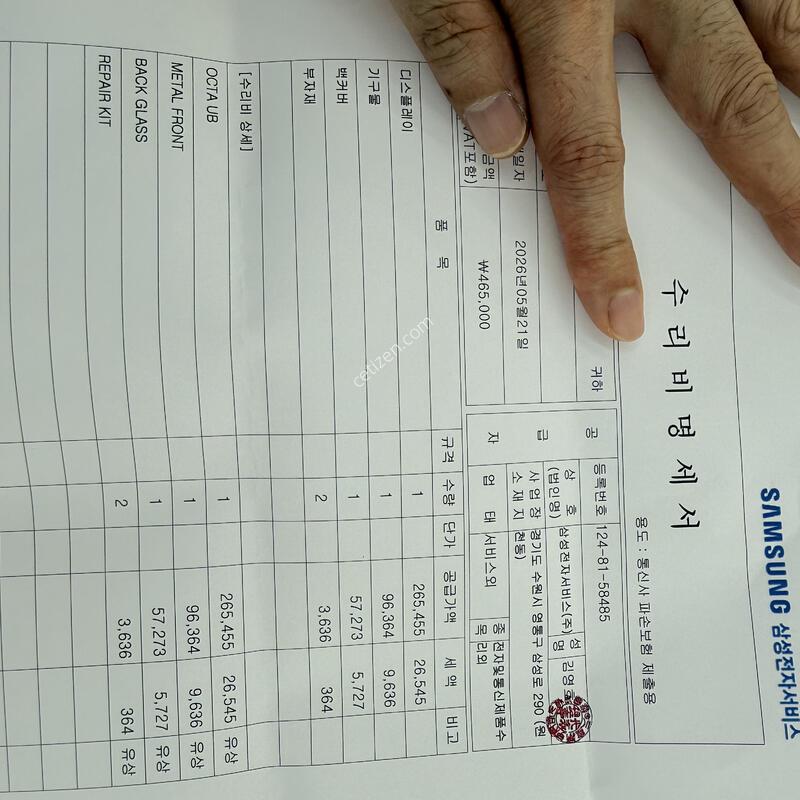 SAMSUNG 삼성전자서비스
수 리 비 명 세 서
용도 : 통신사 파손보험 제출용
귀하
일자 2026년05월21일
금액
VAT포함) ₩465,000
공 급 자
등록번호 124-81-58485
상 호 (법인명) 삼성전자서비스(주) 성 명 김영호
사 업 장 소 재 지 경기도 수원시 영통구 삼성로 290 (원천동)
업 태 서비스외 종 목 전자및통신제품수리외
품 목 규격 수량 단가 공급가액 세 액 비고
디스플레이 1 265,455 26,545
기구물 1 96,364 9,636
백커버 1 57,273 5,727
부자재 2 3,636 364
[수리비 상세]
OCTA UB 1 265,455 26,545 유상
METAL FRONT 1 96,364 9,636 유상
BACK GLASS 1 57,273 5,727 유상
REPAIR KIT 2 3,636 364 유상
cetizen.com